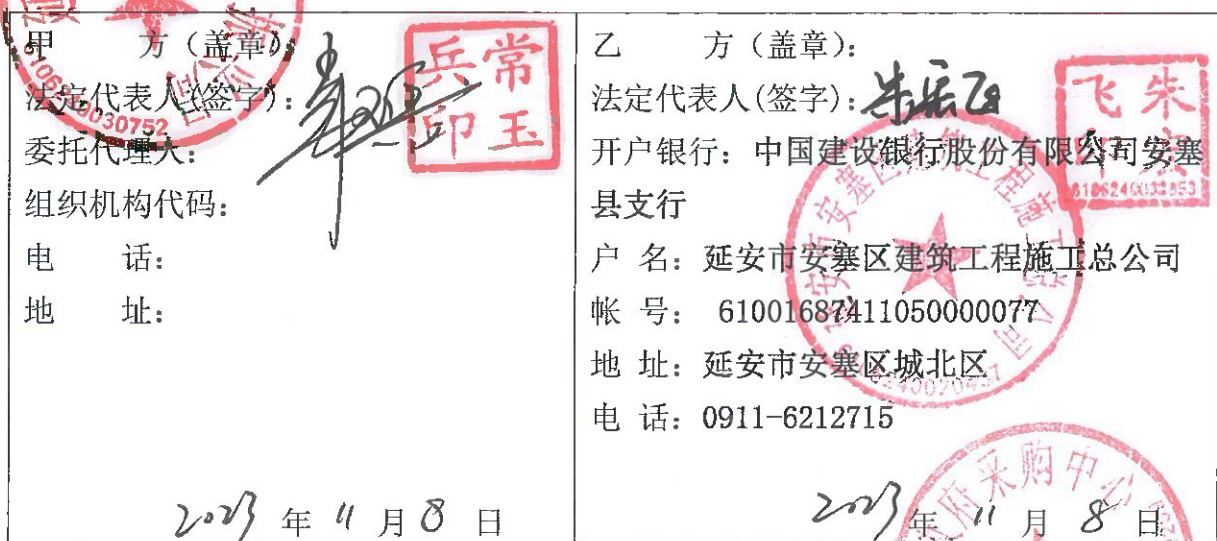 甲 方(盖章):
法定代表人(签字):
委托代理人:
组织机构代码:
电 话:
地 址:
2023 年 11 月 8 日
常玉
兵印
6106240030752
乙 方(盖章):
法定代表人(签字): 朱宏飞
开户银行: 中国建设银行股份有限公司安塞
县支行
户 名: 延安市安塞区建筑工程施工总公司
帐 号: 61001687411050000077
地 址: 延安市安塞区城北区
电 话: 0911-6212715
2023 年 11 月 8 日
朱宏
飞印
延安市安塞区建筑工程施工总公司
府采购中心